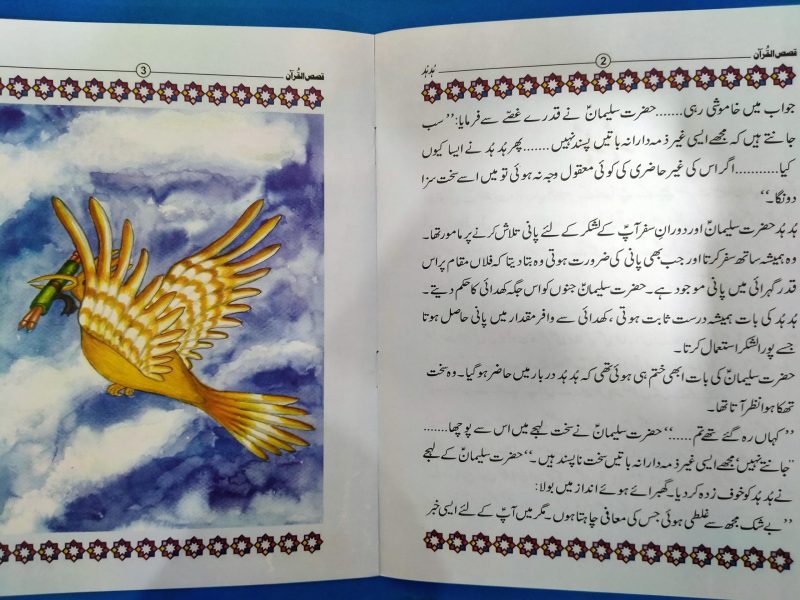 قصص القُرآن
2
ہُد ہُد
جواب میں خاموشی رہی.......حضرت سلیمانؑ نے قدرے غصّے سے فرمایا: ’’سب
جانتے ہیں کہ مجھے ایسی غیر ذمہ دارانہ باتیں پسند نہیں.......پھر ہُد ہُد نے ایسا کیوں
کیا...........اگر اس کی غیر حاضری کی کوئی معقول وجہ نہ ہوئی تو میں اسے سخت سزا
دونگا۔‘‘
ہُد ہُد حضرت سلیمانؑ اور دورانِ سفر آپؑ کے لشکر کے لئے پانی تلاش کرنے پر مامور تھا۔
وہ ہمیشہ ساتھ سفر کرتا اور جب بھی پانی کی ضرورت ہوتی وہ بتا دیتا کہ فلاں مقام پر اس
قدر گہرائی میں پانی موجود ہے۔ حضرت سلیمانؑ جنوں کو اس جگہ کھدائی کا حکم دیتے۔
ہُد ہُد کی بات ہمیشہ درست ثابت ہوتی، کھدائی سے وافر مقدار میں پانی حاصل ہوتا
جسے پورا لشکر استعمال کرتا۔
حضرت سلیمانؑ کی بات ابھی ختم ہی ہوئی تھی کہ ہُد ہُد دربار میں حاضر ہو گیا۔ وہ سخت
تھکا ہوا نظر آتا تھا۔
’’کہاں رہ گئے تھے تم......‘‘ حضرت سلیمانؑ نے سخت لہجے میں اس سے پوچھا........
’’جانتے نہیں؛ مجھے ایسی غیر ذمہ دارانہ باتیں سخت ناپسند ہیں۔‘‘ حضرت سلیمانؑ کے لہجے
نے ہُد ہُد کو خوف زدہ کر دیا۔ گھبرائے ہوئے انداز میں بولا:
’’بے شک مجھ سے غلطی ہوئی جس کی معافی چاہتا ہوں۔ مگر میں آپؑ کے لئے ایسی خبر
قصص القُرآن
3